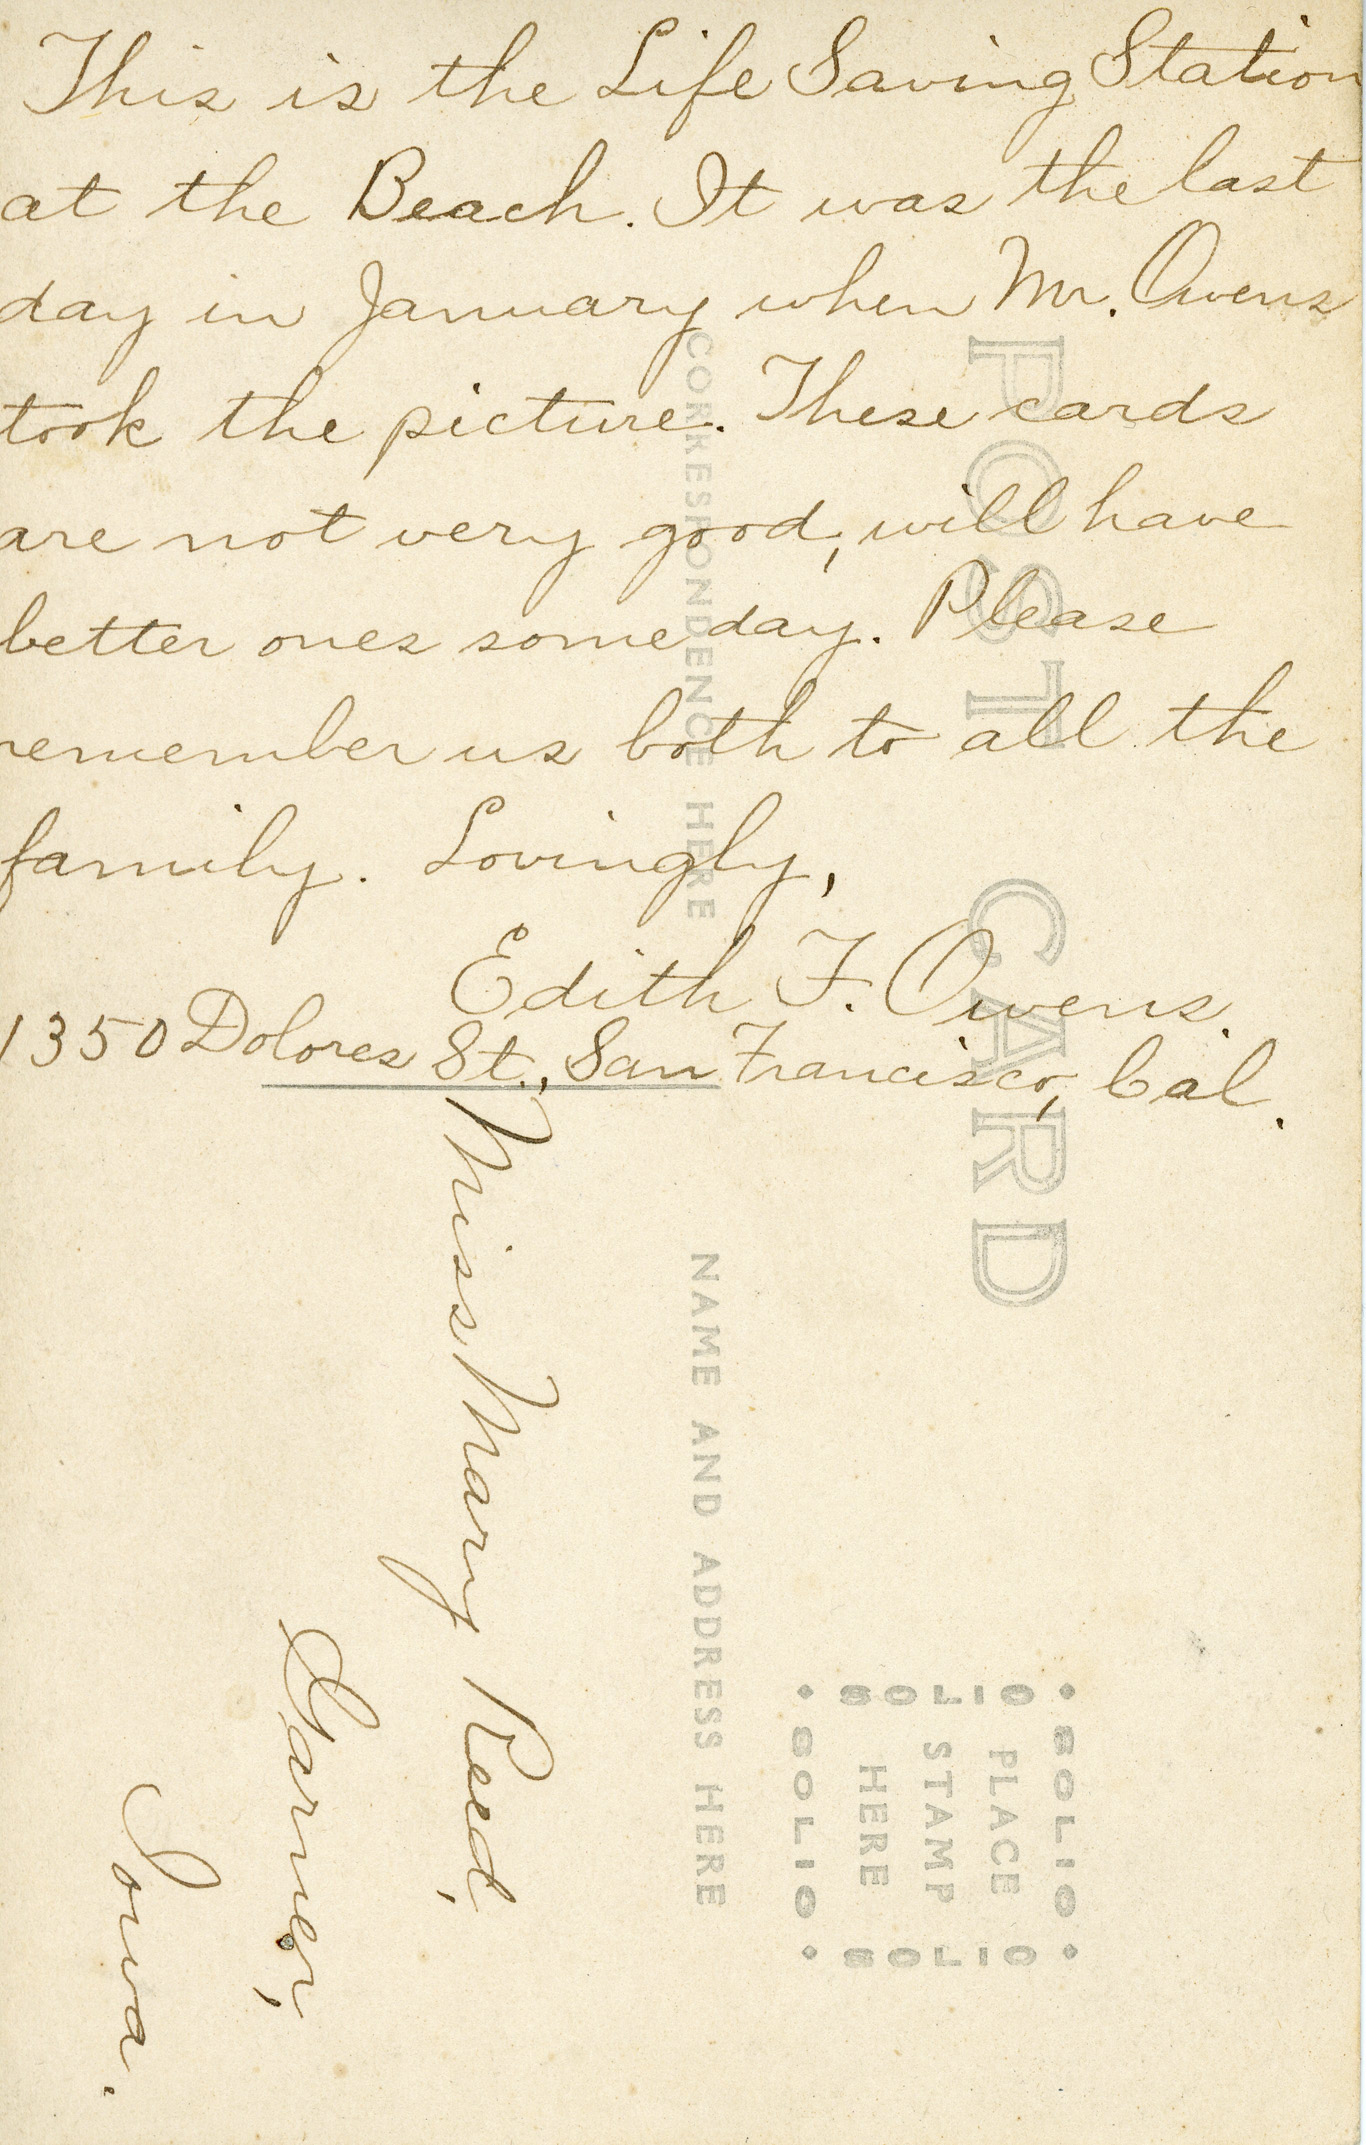 This is the Life Saving Station
at the Beach. It was the last
day in January when Mr. Owens
took the picture. These cards
are not very good, will have
better ones some day. Please
remember us both to all the
family. Lovingly,
Edith F. Owens.
1350 Dolores St., San Francisco, Cal.
POST CARD
CORRESPONDENCE HERE
NAME AND ADDRESS HERE
Miss Mary Reed,
Garner,
Iowa.
SOLIO
SOLIO
PLACE
STAMP
HERE
SOLIO
SOLIO